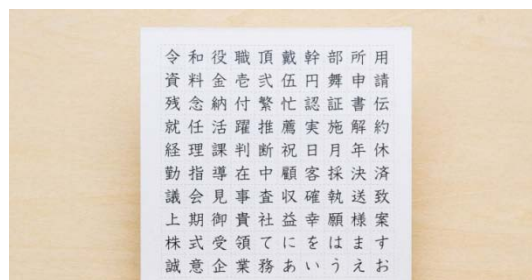 令和役職頂戴幹部所用
資料金壱弐伍円舞申請
残念納付繁忙認証書伝
就任活躍推薦実施解約
経理課判断祝日月年休
勤指導在中顧客採決済
議会見事査収確執送致
上期御貴社益幸願様案
株式受領てにをはます
誠意企業務あいうえお